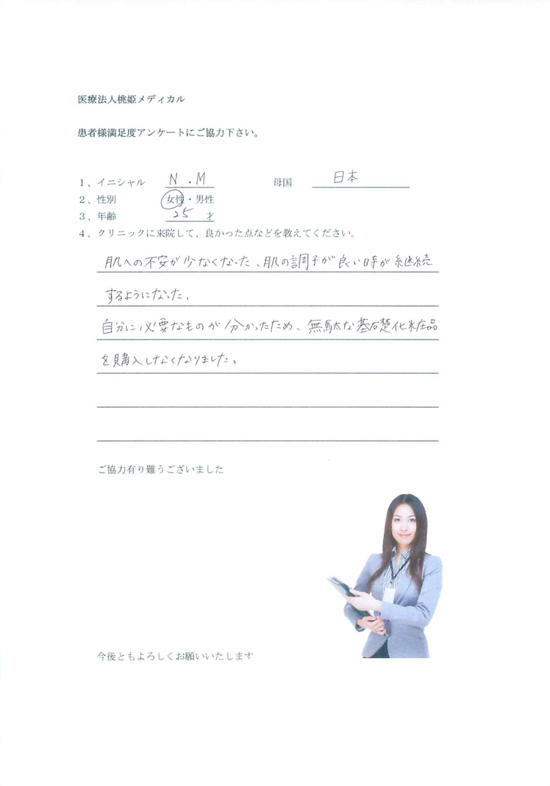 医療法人桃姫メディカル
患者様満足度アンケートにご協力下さい。
1、イニシャル N.M 母国 日本
2、性別 女性・男性
3、年齢 25 才
4、クリニックに来院して、良かった点などを教えてください。
肌への不安が少なくなった、肌の調子が良い時が継続
するようになった。
自分に必要なものが分かったため、無駄な基礎化粧品
を購入しなくなりました。
ご協力有り難うございました
今後ともよろしくお願いいたします